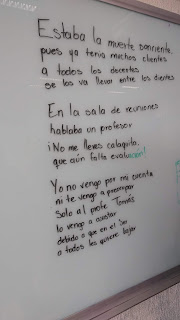 Estaba la muerte sonriente
pues ya tenía muchos clientes
a todos los docentes
se los va llevar entre los dientes
En la sala de reuniones
hablaba un profesor
¡No me lleves calaquita,
que aún falta evaluación!
Yo no vengo por mi cuenta
ni te vengo a preocupar
Solo al profe Tomás
lo vengo a asustar
debido a que en el Ser
a todos les quiere bajar